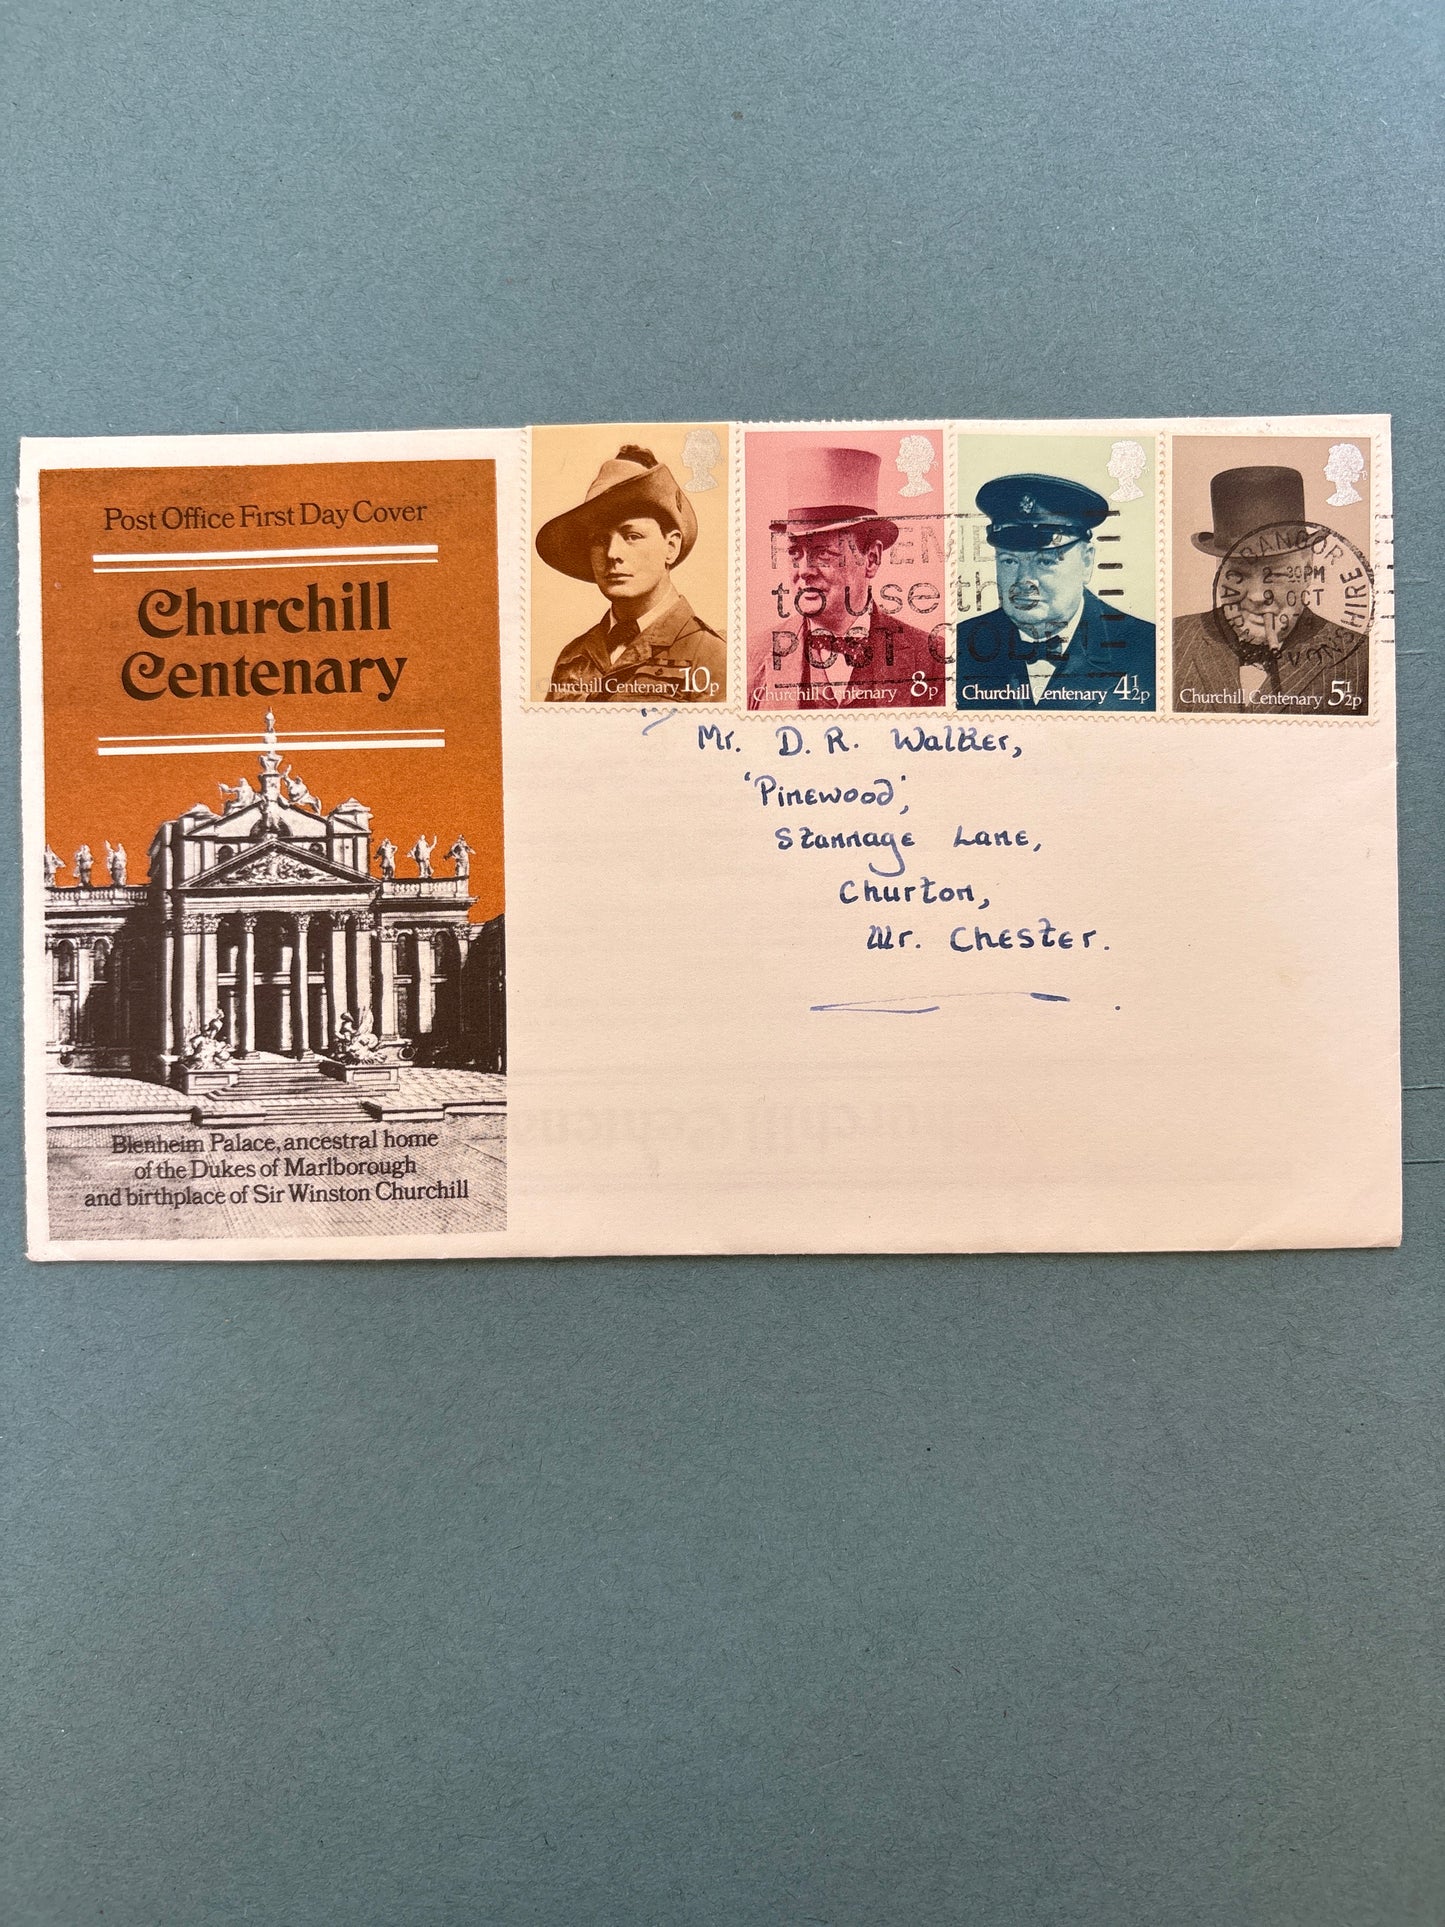 Post Office First Day Cover
Churchill
Centenary
Blenheim Palace, ancestral home
of the Dukes of Marlborough
and birthplace of Sir Winston Churchill
Churchill Centenary 10p
Churchill Centenary 8p
Churchill Centenary 4½p
Churchill Centenary 5½p
REMEMBER
to use the
POST CODE
BANGOR
CAERNARVONSHIRE
2-30PM
9 OCT
1974
Mr. D. R. Walker,
'Pinewood',
Stannage Lane,
Churton,
Nr. Chester.